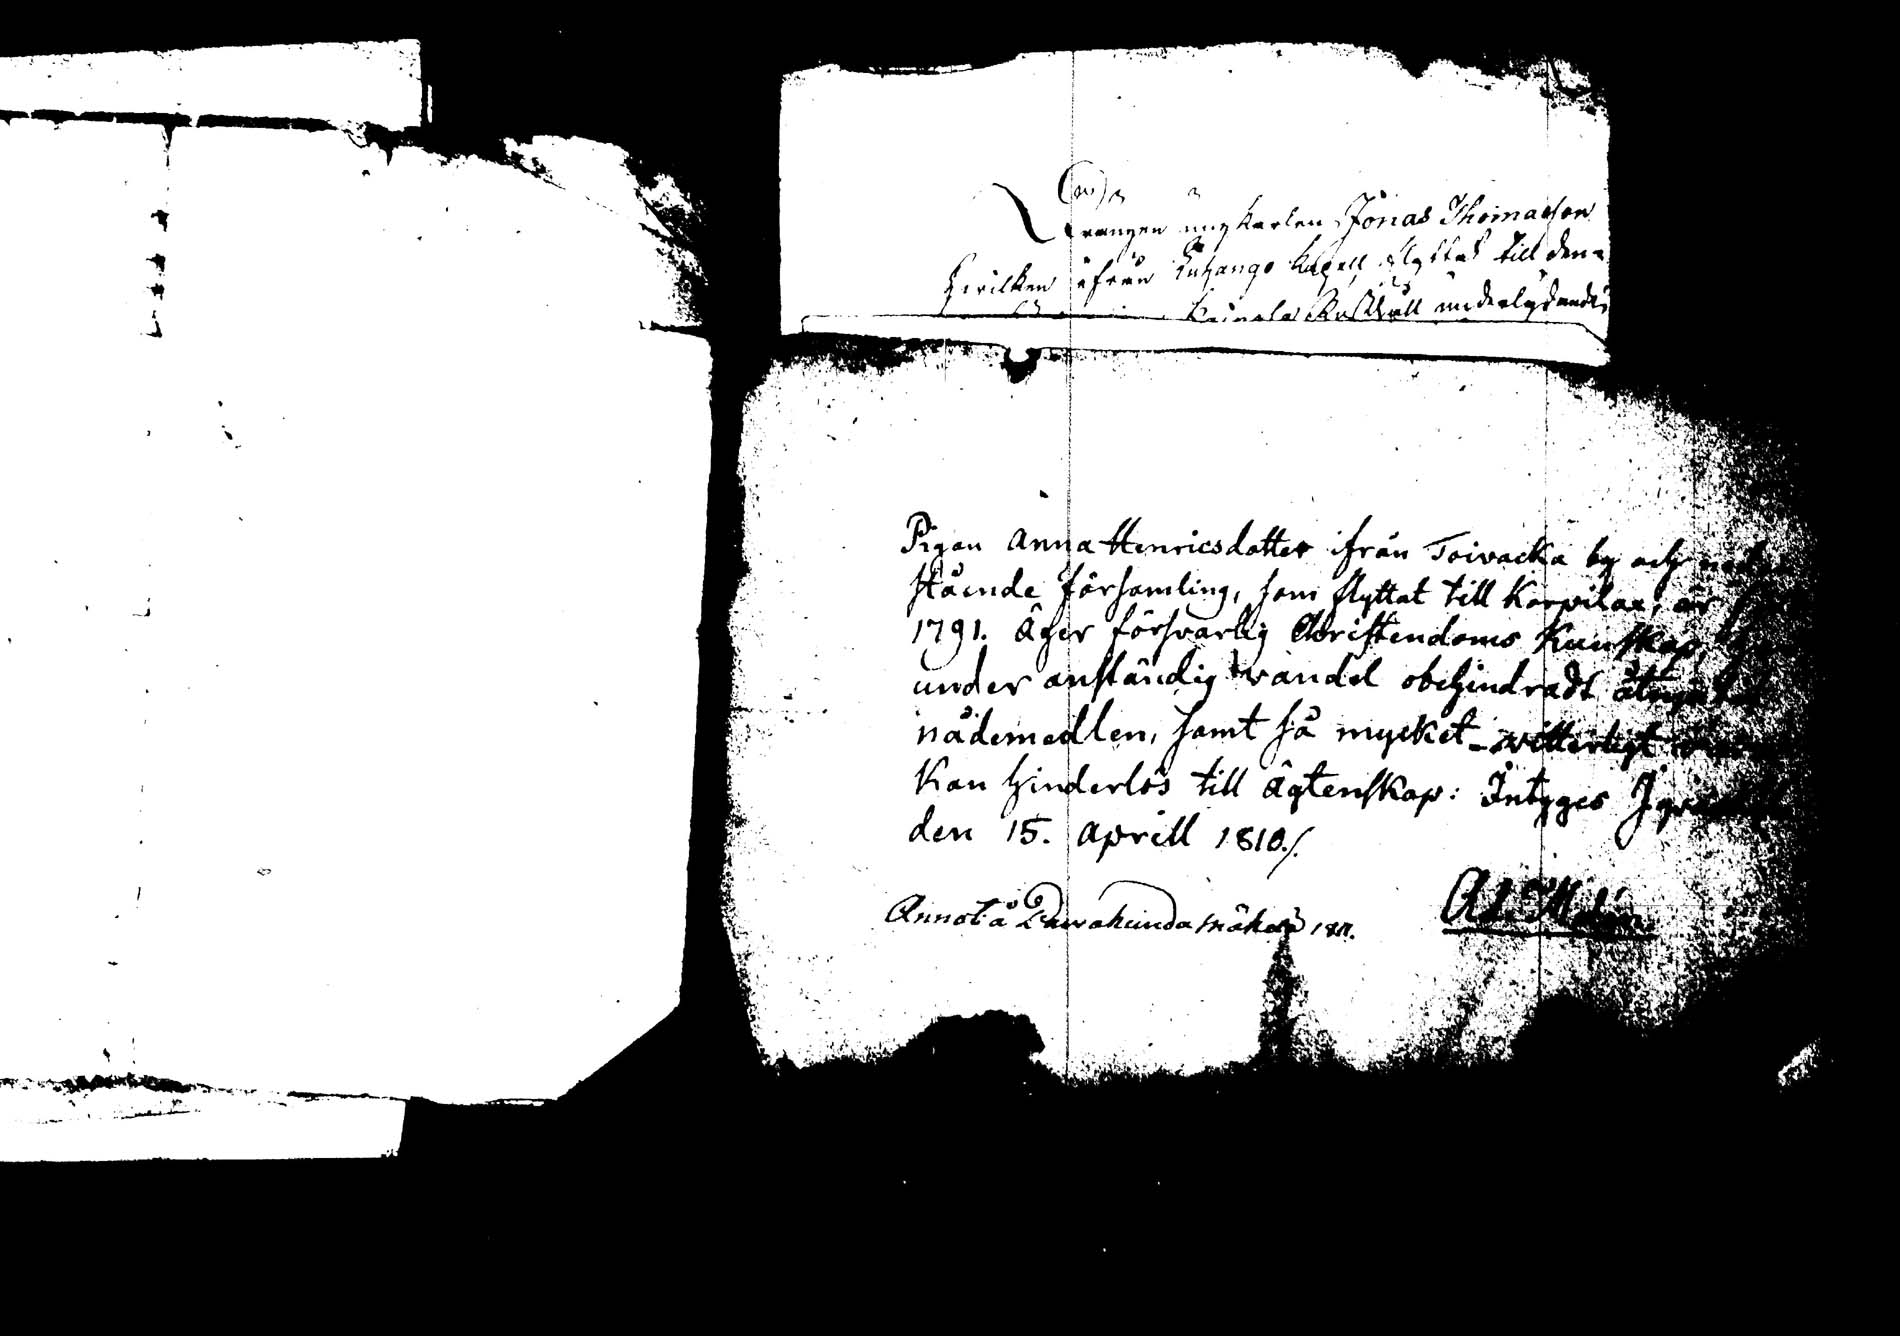 Drängen ungkarlen Jonas Thomasson
hvilken ifrån Kuhango Kapell flyttat till den-
Rusthåll underlydande
Pigan Anna Henricsdotter ifrån Toivacka by och
stående församling, som flyttat till Korpilax, är
1791. Äger försvarlig Christendoms Kunskap,
under anständig vandel obehindradt
nådemedlen, samt så mycket vitterligt
Kan hinderlös till Ägtenskap: Intyges
den 15. Aprill 1810./.
Annot. å